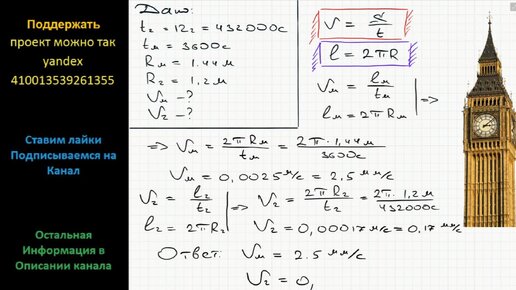 Поддержать
проект можно так
yandex
410013539261355
Ставим лайки
Подписываемся на
Канал
Остальная
Информация в
Описании канала
Дано:
t₂ = 12₂ = 432000с
tₘ = 3600с
Rₘ = 1.44м
R₂ = 1,2м
Vₘ - ?
V₂ - ?
V = d/t
l = 2πR
Vₘ = lₘ/tₘ
lₘ = 2πRₘ |=>
=> Vₘ = 2πRₘ/tₘ = 2π·1,44м/3600с
Vₘ = 0,0025 м/с = 2,5 мм/с
V₂ = l₂/t₂ |=> V₂ = 2πR₂/t₂ = 2π·1.2м/432000с
l₂ = 2πR₂ V₂ = 0,00017 м/с = 0,17 мм/с
Ответ: Vₘ = 2.5 мм/с
V₂ = 0,